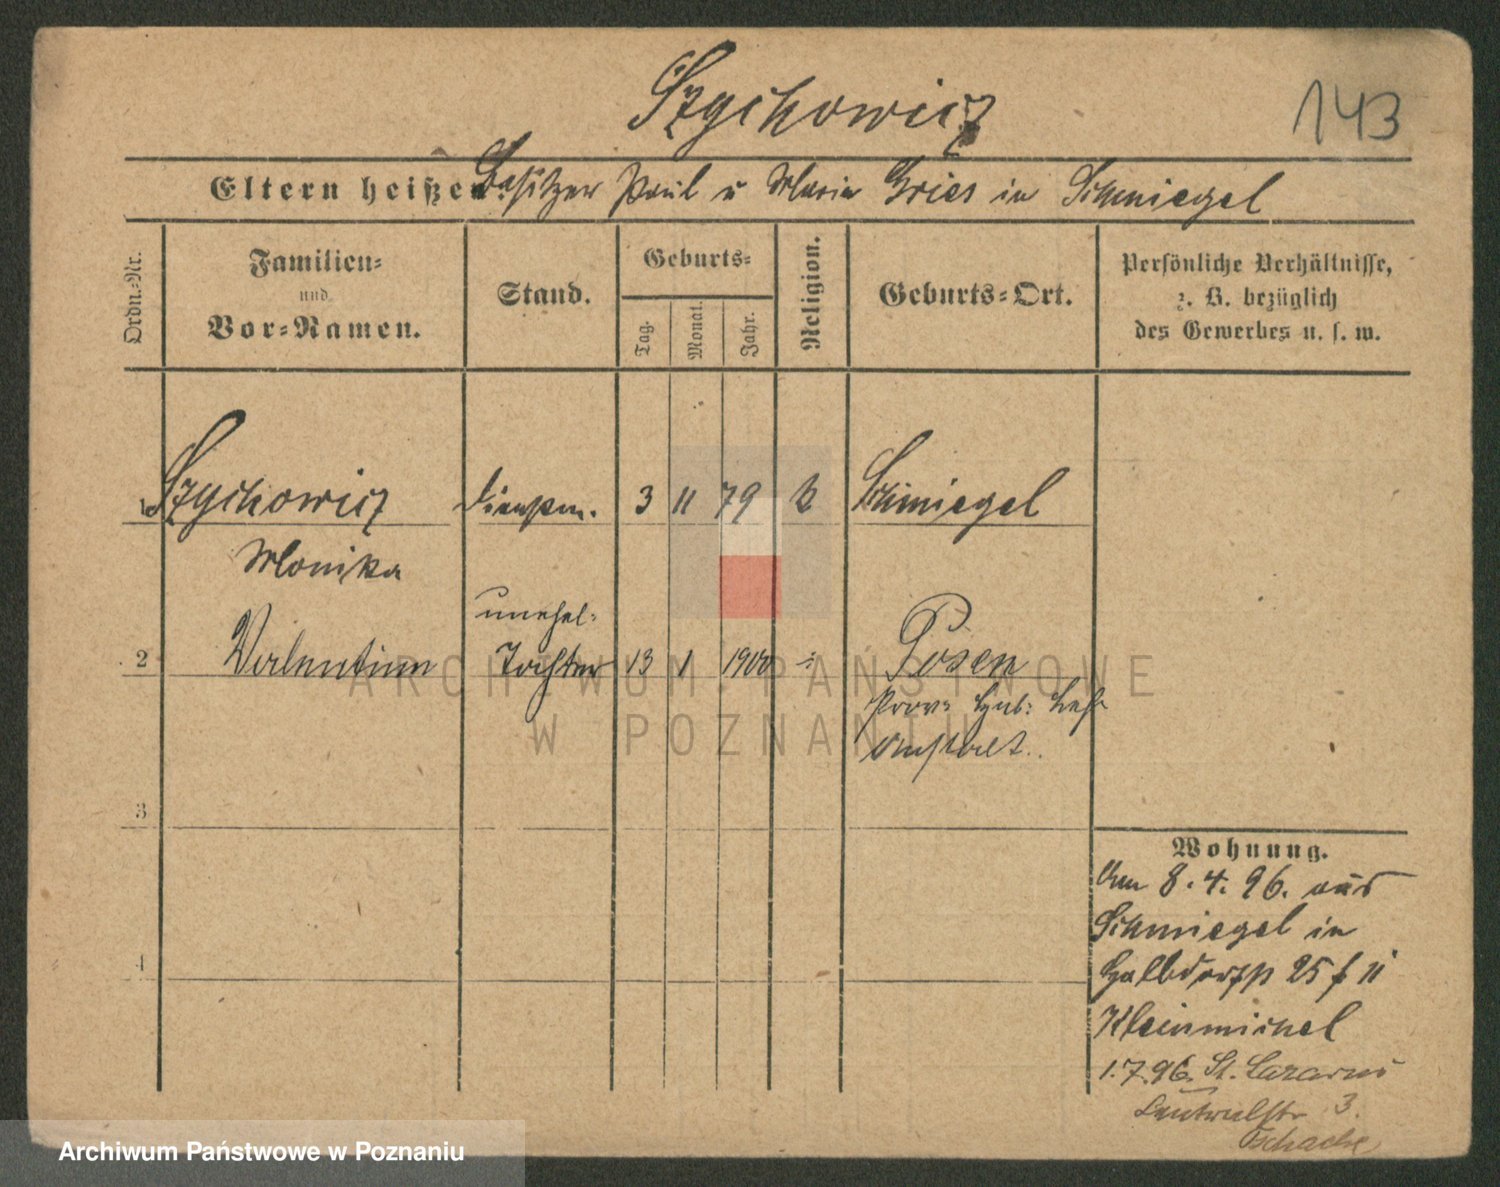 Szychowicz
143
Eltern heißen: Besitzer Paul u Maria Gries in Schmiegel
Ordn.-Nr.
Familien-
und
Vor-Namen.
Stand.
Geburts-
Tag.
Monat.
Jahr.
Religion.
Geburts-Ort.
Persönliche Verhältnisse,
z. B. bezüglich
des Gewerbes u. s. w.
1 Szychowicz Dienstm. 3 11 79 k Schmiegel
Monika
unehel-
2 Valentina Tochter 13 1 1900 Posen
Prov: Heb: Lehr
Anstalt.
3
4
Wohnung.
Am 8.4.96. aus
Schmiegel in
Halbdorfstr 25 f II
Kleinmichel
1.7.96. St. Lazarus
3.
Tschache
ARCHIWUM PAŃSTWOWE
W POZNANIU
Archiwum Państwowe w Poznaniu